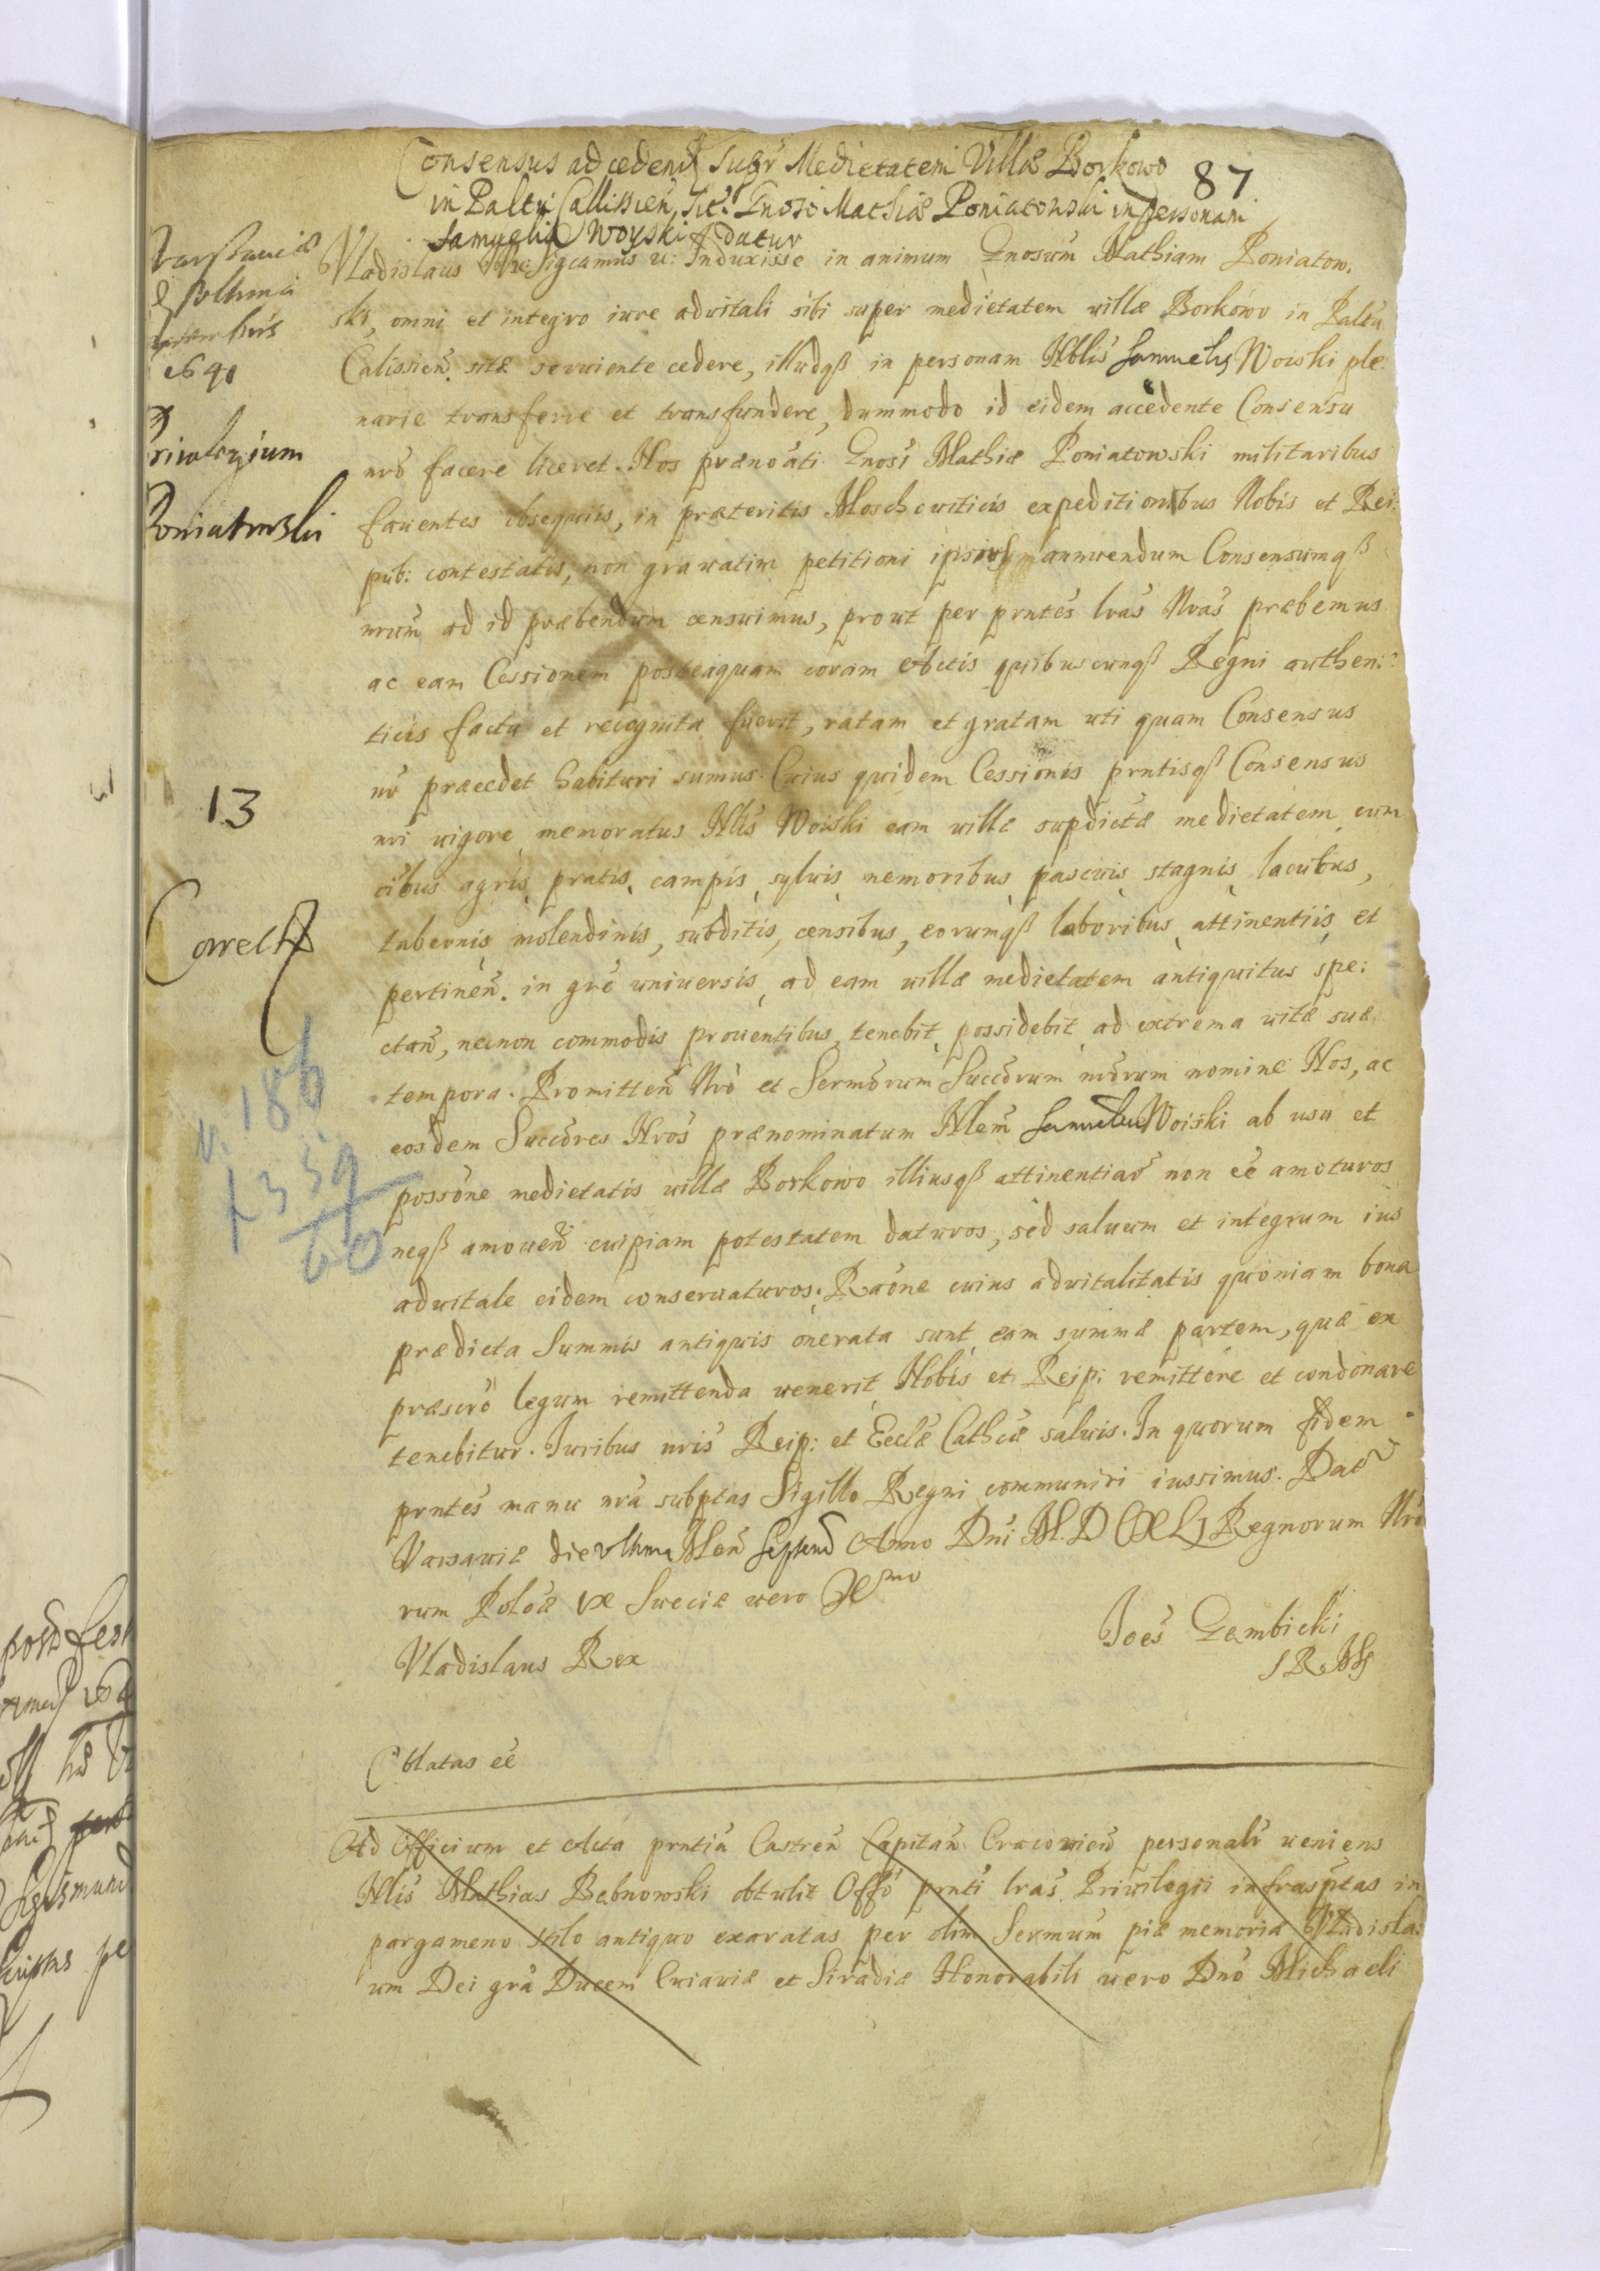 Consensus ad cedend Supr Medietatem Villæ Borkowo
87
in Paltu Callissien, sit: Gnoso Mathiæ Poniatowski in personam
Samuelis Woyski datur
Varssauiæ
ultima
1641
Priuilegium
Poniatowski
13
Correct
v. 186
Vladislaus Rx Sigcamus u: Induxisse in animum Gnosum Mathiam Poniatow.
ski, omni et integro iure aduitali sibi super medietatem villæ Borkowo in Paltu
Calissien. sitæ seruiente cedere, illudqß in personam Nblis Samuelis Woiski ple
narie transferre et transfundere, dummodo id eidem accedente Consensu
nro facere liceret. Nos prænoati Gnosi Mathiæ Poniatowski militaribus
fauentes obsequiis, in præteritis Moschouiticis expeditionibus Nobis et Rei:
pub: contestatis, non grauatim petitioni ipsius annuendum Consensumqß
nrum ad id præbendum censuimus, prout per prntes lras Nras præbemus
ac eam Cessionem posteaquam coram Actis quibuscunqß Regni authen:
ticis facta et recognita fuerit, ratam et gratam uti quam Consensus
nr præcedet habituri sumus. Cuius quidem Cessionis prntisqß Consensus
nri vigore memoratus Nlis Woiski eam villæ supdictæ medietatem, cum
oibus agris, pratis, campis, syluis, nemoribus, pascuis, stagnis, lacubus,
tabernis, molendinis, subditis, censibus, eorumqß laboribus, attinentiis, et
pertinen. in gre vniuersis, ad eam villæ medietatem antiquitus spe:
ctan, necnon commodis prouentibus, tenebit, possidebit, ad extrema vitæ suæ
tempora. Promitten Nro et Sermorum Succorum nrorum nomine Nos, ac
eosdem Succores Nros prænominatum Nlem Samuelem Woiski ab usu et
possone medietatis villæ Borkowo illiusqß attinentiar non ee amoturos
neqß amouen cuipiam potestatem daturos, sed saluum et integrum ius
aduitale eidem conseruaturos. Raone cuius aduitalitatis quoniam bona
prædicta Summis antiquis onerata sunt, eam summæ partem, quæ ex
præscro legum remittenda venerit, Nobis et Reip: remittere et condonare
tenebitur. Iuribus nris Reip: et Ecclæ Cathcæ saluis. In quorum fidem
prntes manu nra subptas Sigillo Regni communiri iussimus. Dat
Varsauiæ die vltima Men Septemb Anno Dni M.D CXLI Regnorum Nro
rum Poloæ IX Sueciæ vero Xmo
Vladislaus Rex
Ioes Gembicki
S R M
Oblatas ee
Ad Officium et Acta prntia Castren Capitan Cracouien personalr veniens
Nlis Mathias Bebnowski obtulit Offo prnti lras Priuilegii infrasptas in
pargameno stilo antiquo exaratas per olim Sermum piæ memoriæ Vladisla:
um Dei gra Ducem Cuiauiæ et Siradiæ Honorabili vero Dno Michaeli